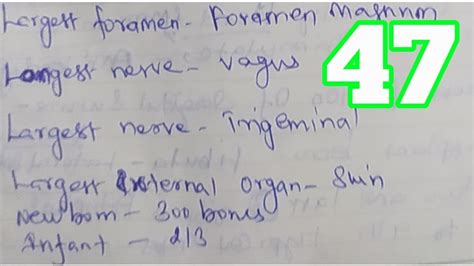 Largest foramen - Foramen Magnum
47
Longest nerve - Vagus
Largest nerve - Trigeminal
Largest External organ - Skin
New born - 300 bones
Infant - 213